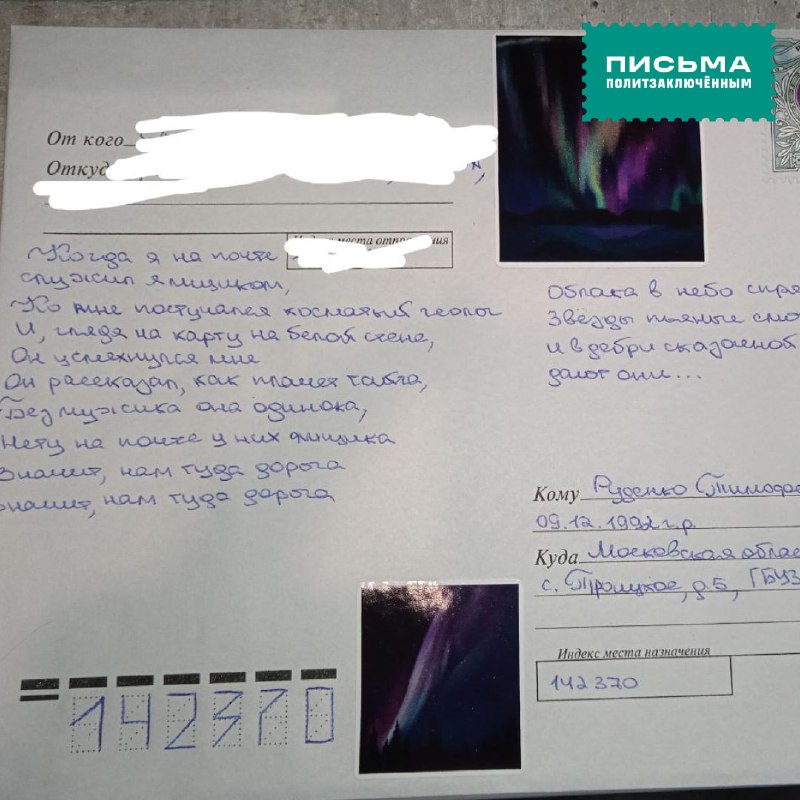 ПИСЬМА
ПОЛИТЗАКЛЮЧЁННЫМ
От кого
Откуд
места отпр
ния
Когда я на почте
служил ямщиком,
Ко мне постучался косматый геолог
И, глядя на карту на белой стене,
Он усмехнулся мне
Он рассказал, как плачет тайга,
Без мужика она одинока,
Нету на почте у них ямщика
Значит, нам туда дорога
значит, нам туда дорога
Облака в небо спря
Звёзды пьяные смо
и в дебри сказочной
дают они...
Кому Руденко Тимофе
09.12.1992 г.р.
Куда Московская облас
с. Троицкое, д.5, ГБУЗ
Индекс места назначения
142370
142370